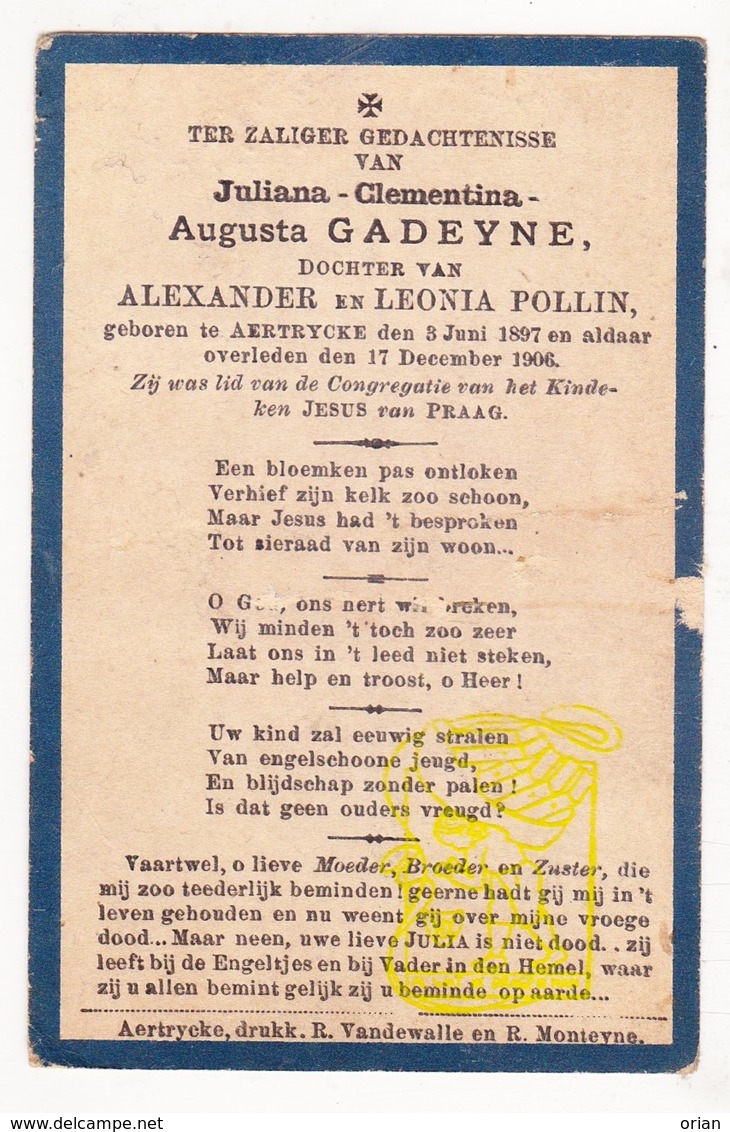 TER ZALIGER GEDACHTENISSE
VAN
Juliana - Clementina -
Augusta GADEYNE,
DOCHTER VAN
ALEXANDER EN LEONIA POLLIN,
geboren te AERTRYCKE den 3 Juni 1897 en aldaar
overleden den 17 December 1906.
Zij was lid van de Congregatie van het Kinde-
ken JESUS van PRAAG.
Een bloemken pas ontloken
Verhief zijn kelk zoo schoon,
Maar Jesus had 't besproken
Tot sieraad van zijn woon...
O God, ons hert wil breken,
Wij minden 't toch zoo zeer
Laat ons in 't leed niet steken,
Maar help en troost, o Heer !
Uw kind zal eeuwig stralen
Van engelschoone jeugd,
En blijdschap zonder palen !
Is dat geen ouders vreugd?
Vaartwel, o lieve Moeder, Broeder en Zuster, die
mij zoo teederlijk beminden ! geerne hadt gij mij in 't
leven gehouden en nu weent gij over mijne vroege
dood... Maar neen, uwe lieve JULIA is niet dood. . zij
leeft bij de Engeltjes en bij Vader in den Hemel, waar
zij u allen bemint gelijk zij u beminde op aarde...
Aertrycke, drukk. R. Vandewalle en R. Monteyne.
www.delcampe.net
orian